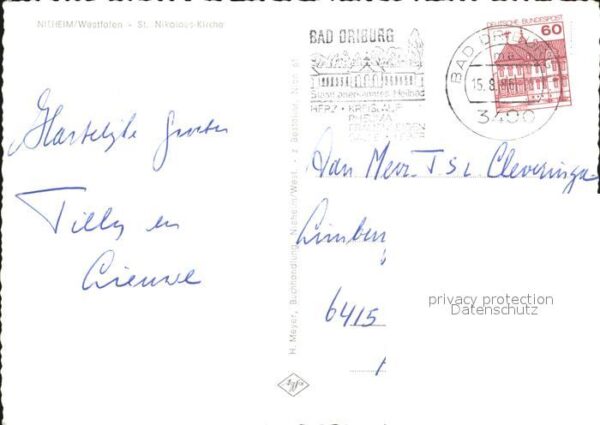 NIEHEIM/Westfalen - St. Nikolaus-Kirche
BAD DRIBURG
Heilbad
HERZ · KREISLAUF
RHEUMA
DEUTSCHE BUNDESPOST
60
BAD DRIBURG
15.8.
3490
Hartelijke groeten
Tilly en
Lieuwe
Aan Mevr. T S L Cleveringa
Limburg
6415
H. Meyer, Buchhandlung, Nieheim/West.
Agfa
privacy protection
Datenschutz